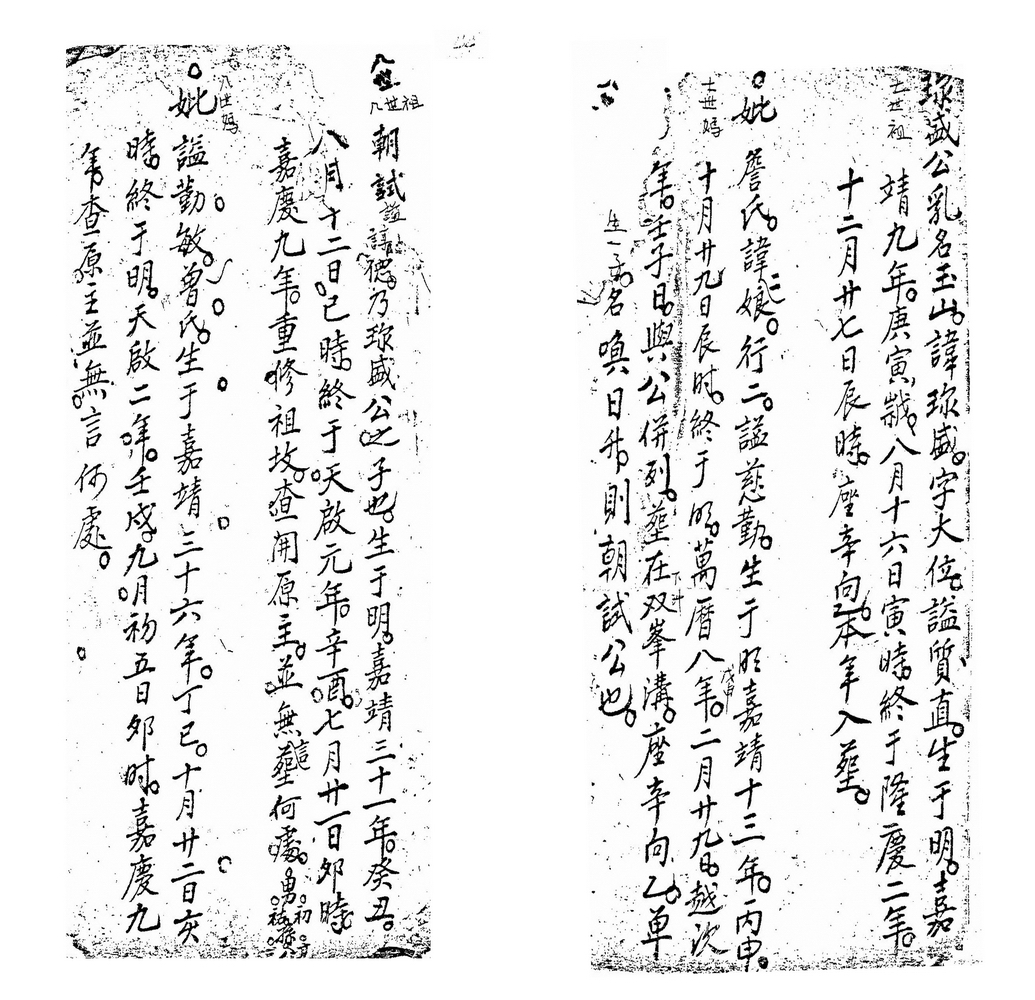 七世祖
琭盛公乳名玉山。諱琭盛。字大位。諡質直。生于明。嘉
靖九年。庚寅歲。八月十六日寅時。終于隆慶二年。
十二月廿七日辰時。座辛向乙。本年入塟。
七世媽
妣 詹氏。諱娘。行二。諡慈勤。生于明嘉靖十三年。丙申。
十月廿九日辰时。終于明。萬曆八年。二月廿九日。越次
年。壬子日。與公併列。塟在双峯溝。座辛向乙。单
生一子。名喚日升。則朝試公也。
八世祖
朝試諡諄德。乃琭盛公之子也。生于明。嘉靖三十一年。癸丑。
八月十二日。巳時。終于天啟元年。辛酉。七月廿一日夘時
嘉慶九年。重修祖坟。查開原主。並無言塟何處。
八世媽
妣 諡勤敏。曾氏。生于嘉靖三十六年。丁巳。十月廿二日亥
時。終于明。天啟二年。壬戍。九月初五日夘时。嘉慶九
年。查原主並無言何處。